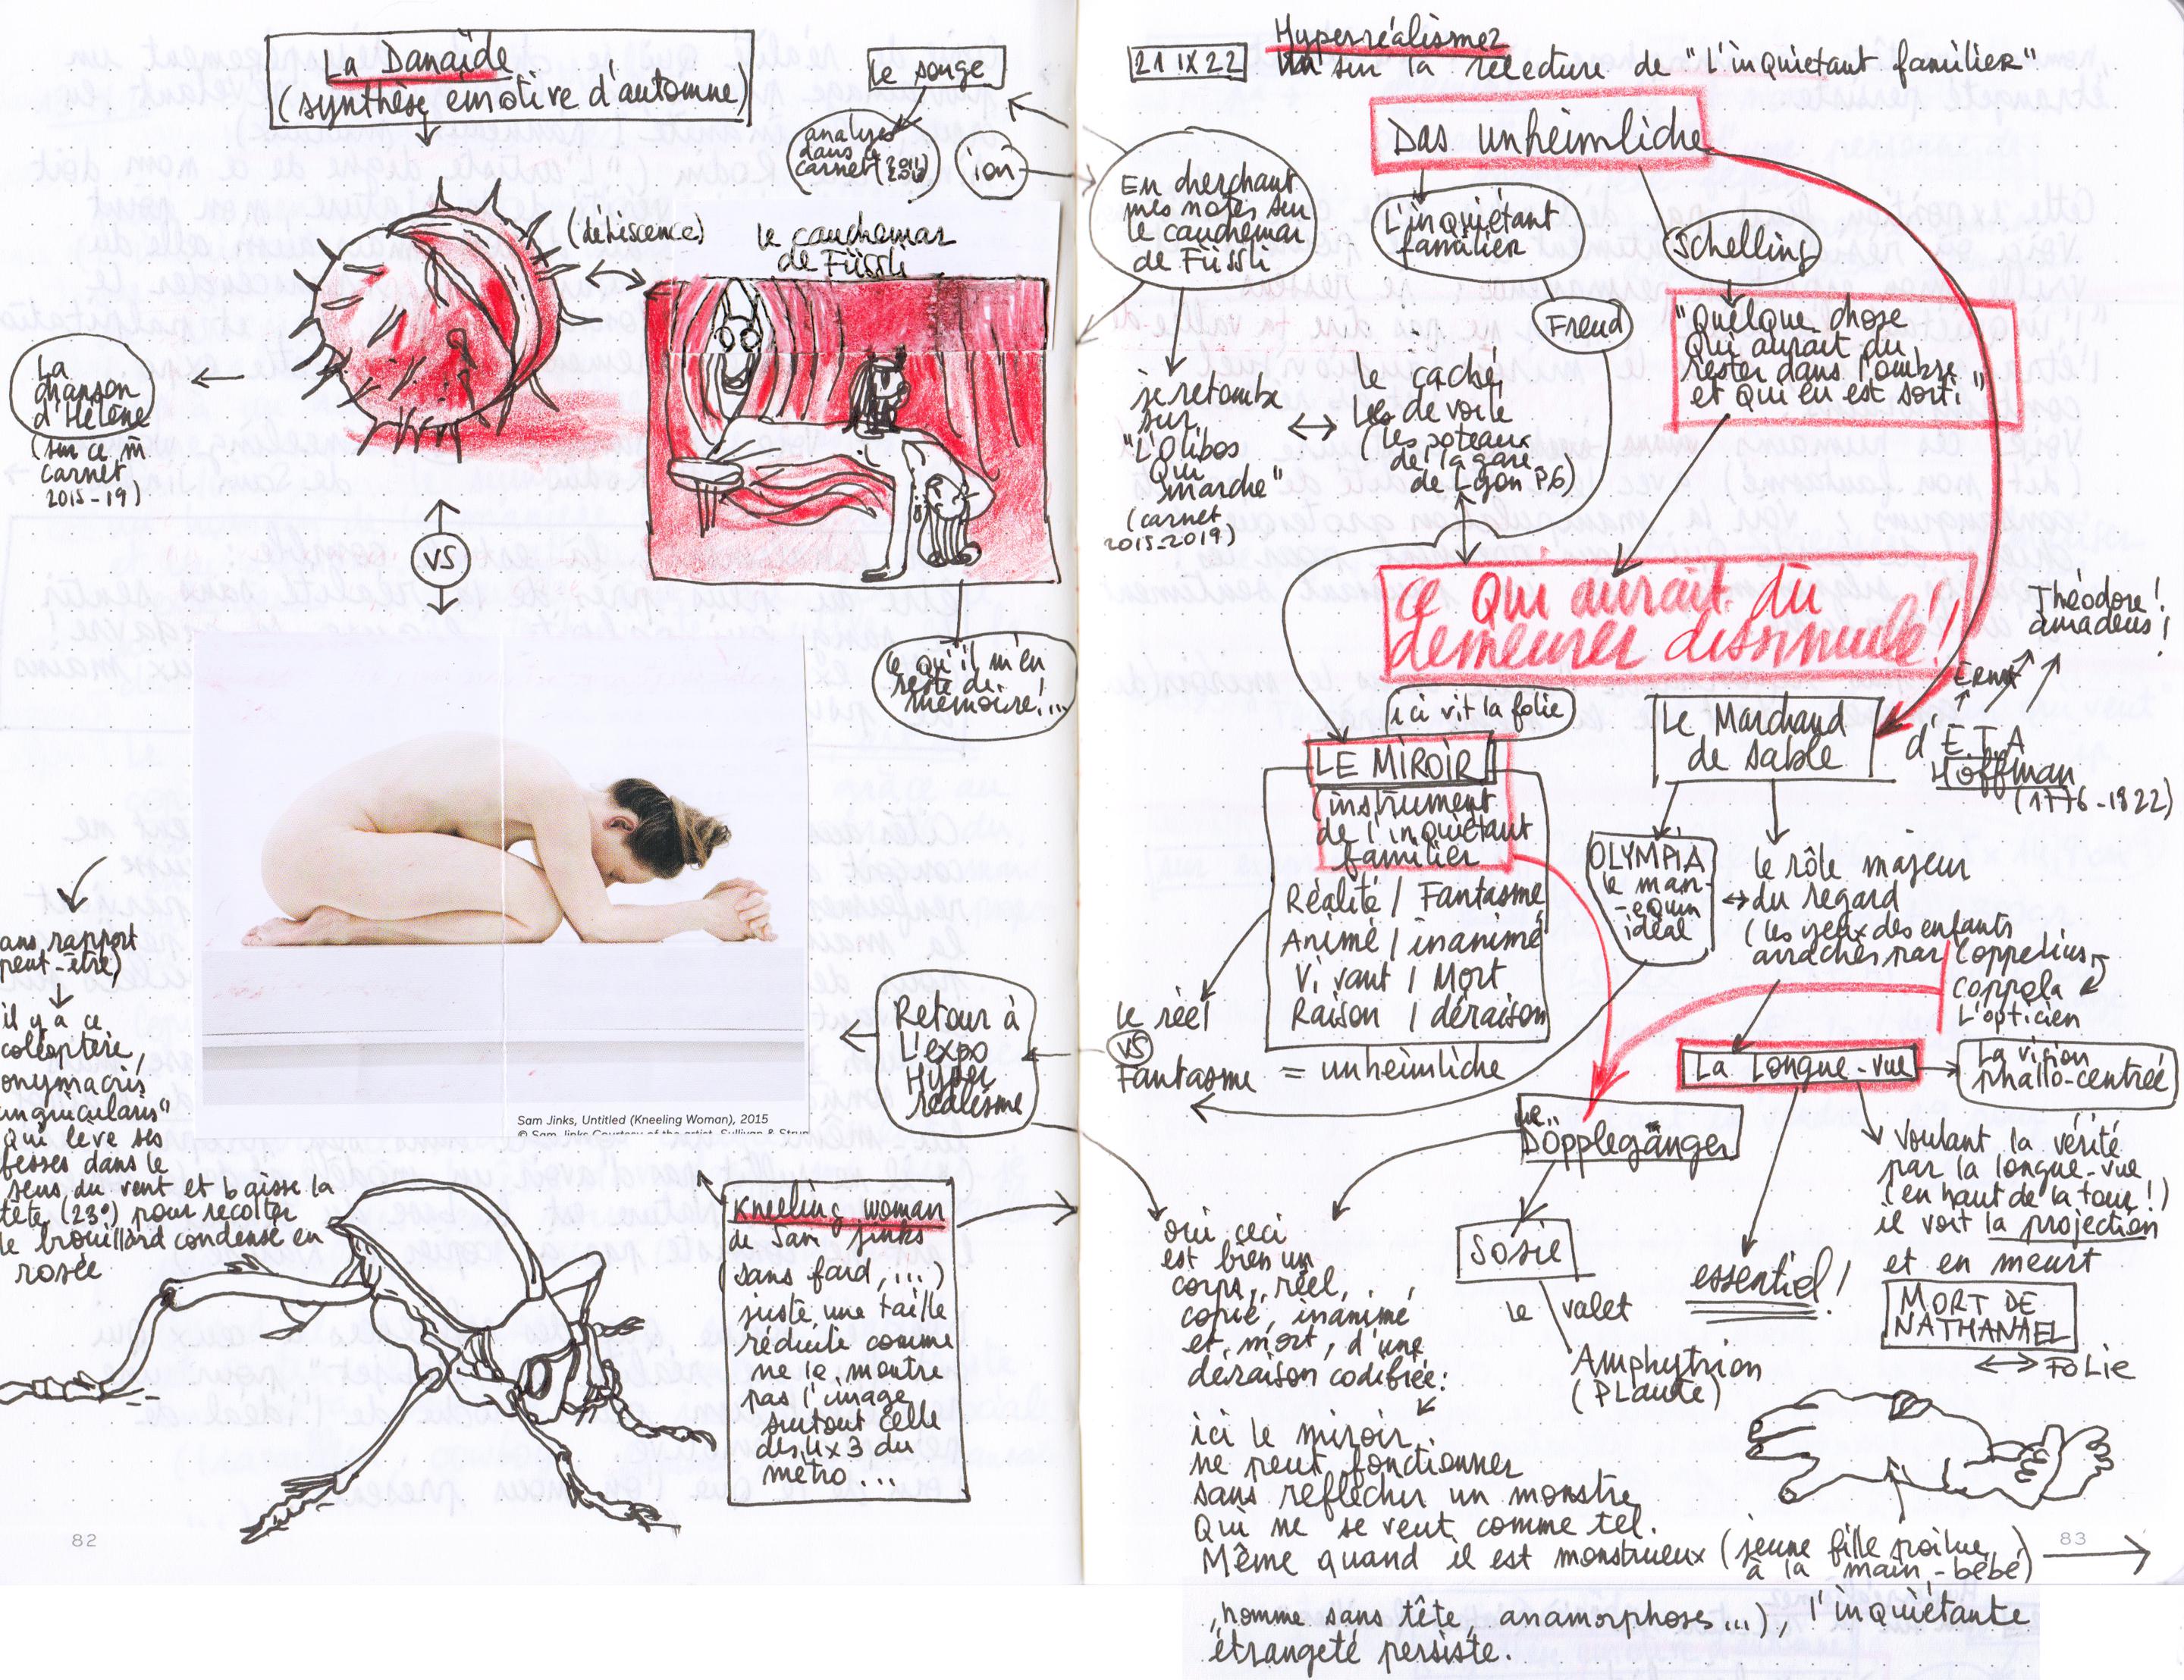 La Danaïde
(synthèse émotive d'automne)
Le songe
analyse
dans le
carnet
ion
(déhiscence)
le cauchemar
de Füssli
La
chanson
d'Hélène
(sur ce m̄
carnet
2015-19)
VS
ce qu'il m'en
reste de
mémoire!...
ans rapport
peut-être)
il y a ce
coléoptère,
onymacris
unguicularis"
qui lève ses
fesses dans le
sens du vent et baisse la
tête (23°) pour récolter
le brouillard condensé en
rosée
Sam Jinks, Untitled (Kneeling Woman), 2015
© Sam Jinks Courtesy of the artist, Sullivan & Strum
Retour à
L'expo
Hyper
réalisme
Kneeling woman
de Sam Jinks
(sans fard,...)
juste une taille
réduite comme
ne le montre
pas l'image
surtout celle
des 4x3 du
métro...
82
21 IX 22
Hyperréalisme
sur la relecture de "L'inquiétant familier"
Das unheimliche
En cherchant
mes notes sur
le cauchemar
de Füssli
L'inquiétant
familier
Schelling
Freud
"Quelque chose
qui aurait dû
rester dans l'ombre
et qui en est sorti"
je retombe
sur
"L'Olibos
qui
marche"
(carnet
2015-2019)
le caché
de voile
(les poteaux
de la gare
de Lyon P6)
ce qui aurait dû
demeurer dissimulé!
Théodore!
amadeus!
Ernst
ici vit la folie
Le Marchand
de sable
d'E.T.A
Hoffman
(1776-1822)
LE MIROIR
(instrument
de l'inquiétant
familier
Réalité / Fantasme
Animé / inanimé
Vivant / Mort
Raison / déraison
OLYMPIA
le man-
-equin
idéal
le rôle majeur
du regard
(les yeux des enfants
arrachés par Coppelius
Coppola
L'opticien
le réel
VS
Fantasme = unheimliche
La Longue-vue
La vision
phallo-centrée
Le
Döpplegänger
voulant la vérité
par la longue-vue
(en haut de la tour!)
il voit la projection
et en meurt
Sosie
le valet
essentiel!
MORT DE
NATHANAEL
FOLIE
Amphytrion
(PLaute)
oui ceci
est bien un
corps, réel,
copié, inanimé
et, mort, d'une
déraison codifiée!
ici le miroir
ne peut fonctionner
sans réfléchir un monstre
Qui ne se veut comme tel.
Même quand il est monstrueux (jeune fille poilue
à la main-bébé)
83
, homme sans tête, anamorphose...), l'inquiétante
étrangeté persiste.